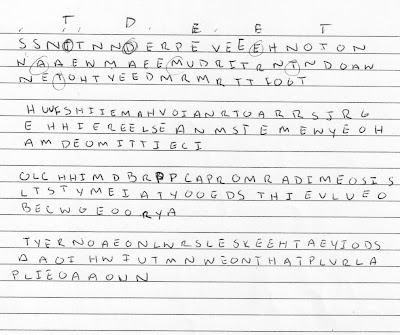 T D E E T
S S N I T N N D E R P E V E E E H N O T O N
W A A E W M A E E M U D R I T R N T N D O A W
N E I O H T V E E D M R M R T T I O O T
H U W S H I I E M A H V O I A N R T O A R R S I R G
E H H I E R E E L S E A N M S T E M E W Y E O H
A M D E O M I T T I E C I
O L C H H I M D B R P P C A P R O M R A D I M E O S I S
L T S T Y M E I A T Y O O G D S T H I E V L V E O
B E C W G E O O R Y A
T Y E R N O A E O N L W R S L E S K E E H T A E Y I O D S
A A O I H W I U T M N W E O N T H A T P L V R L A
P L I E O A A O N N